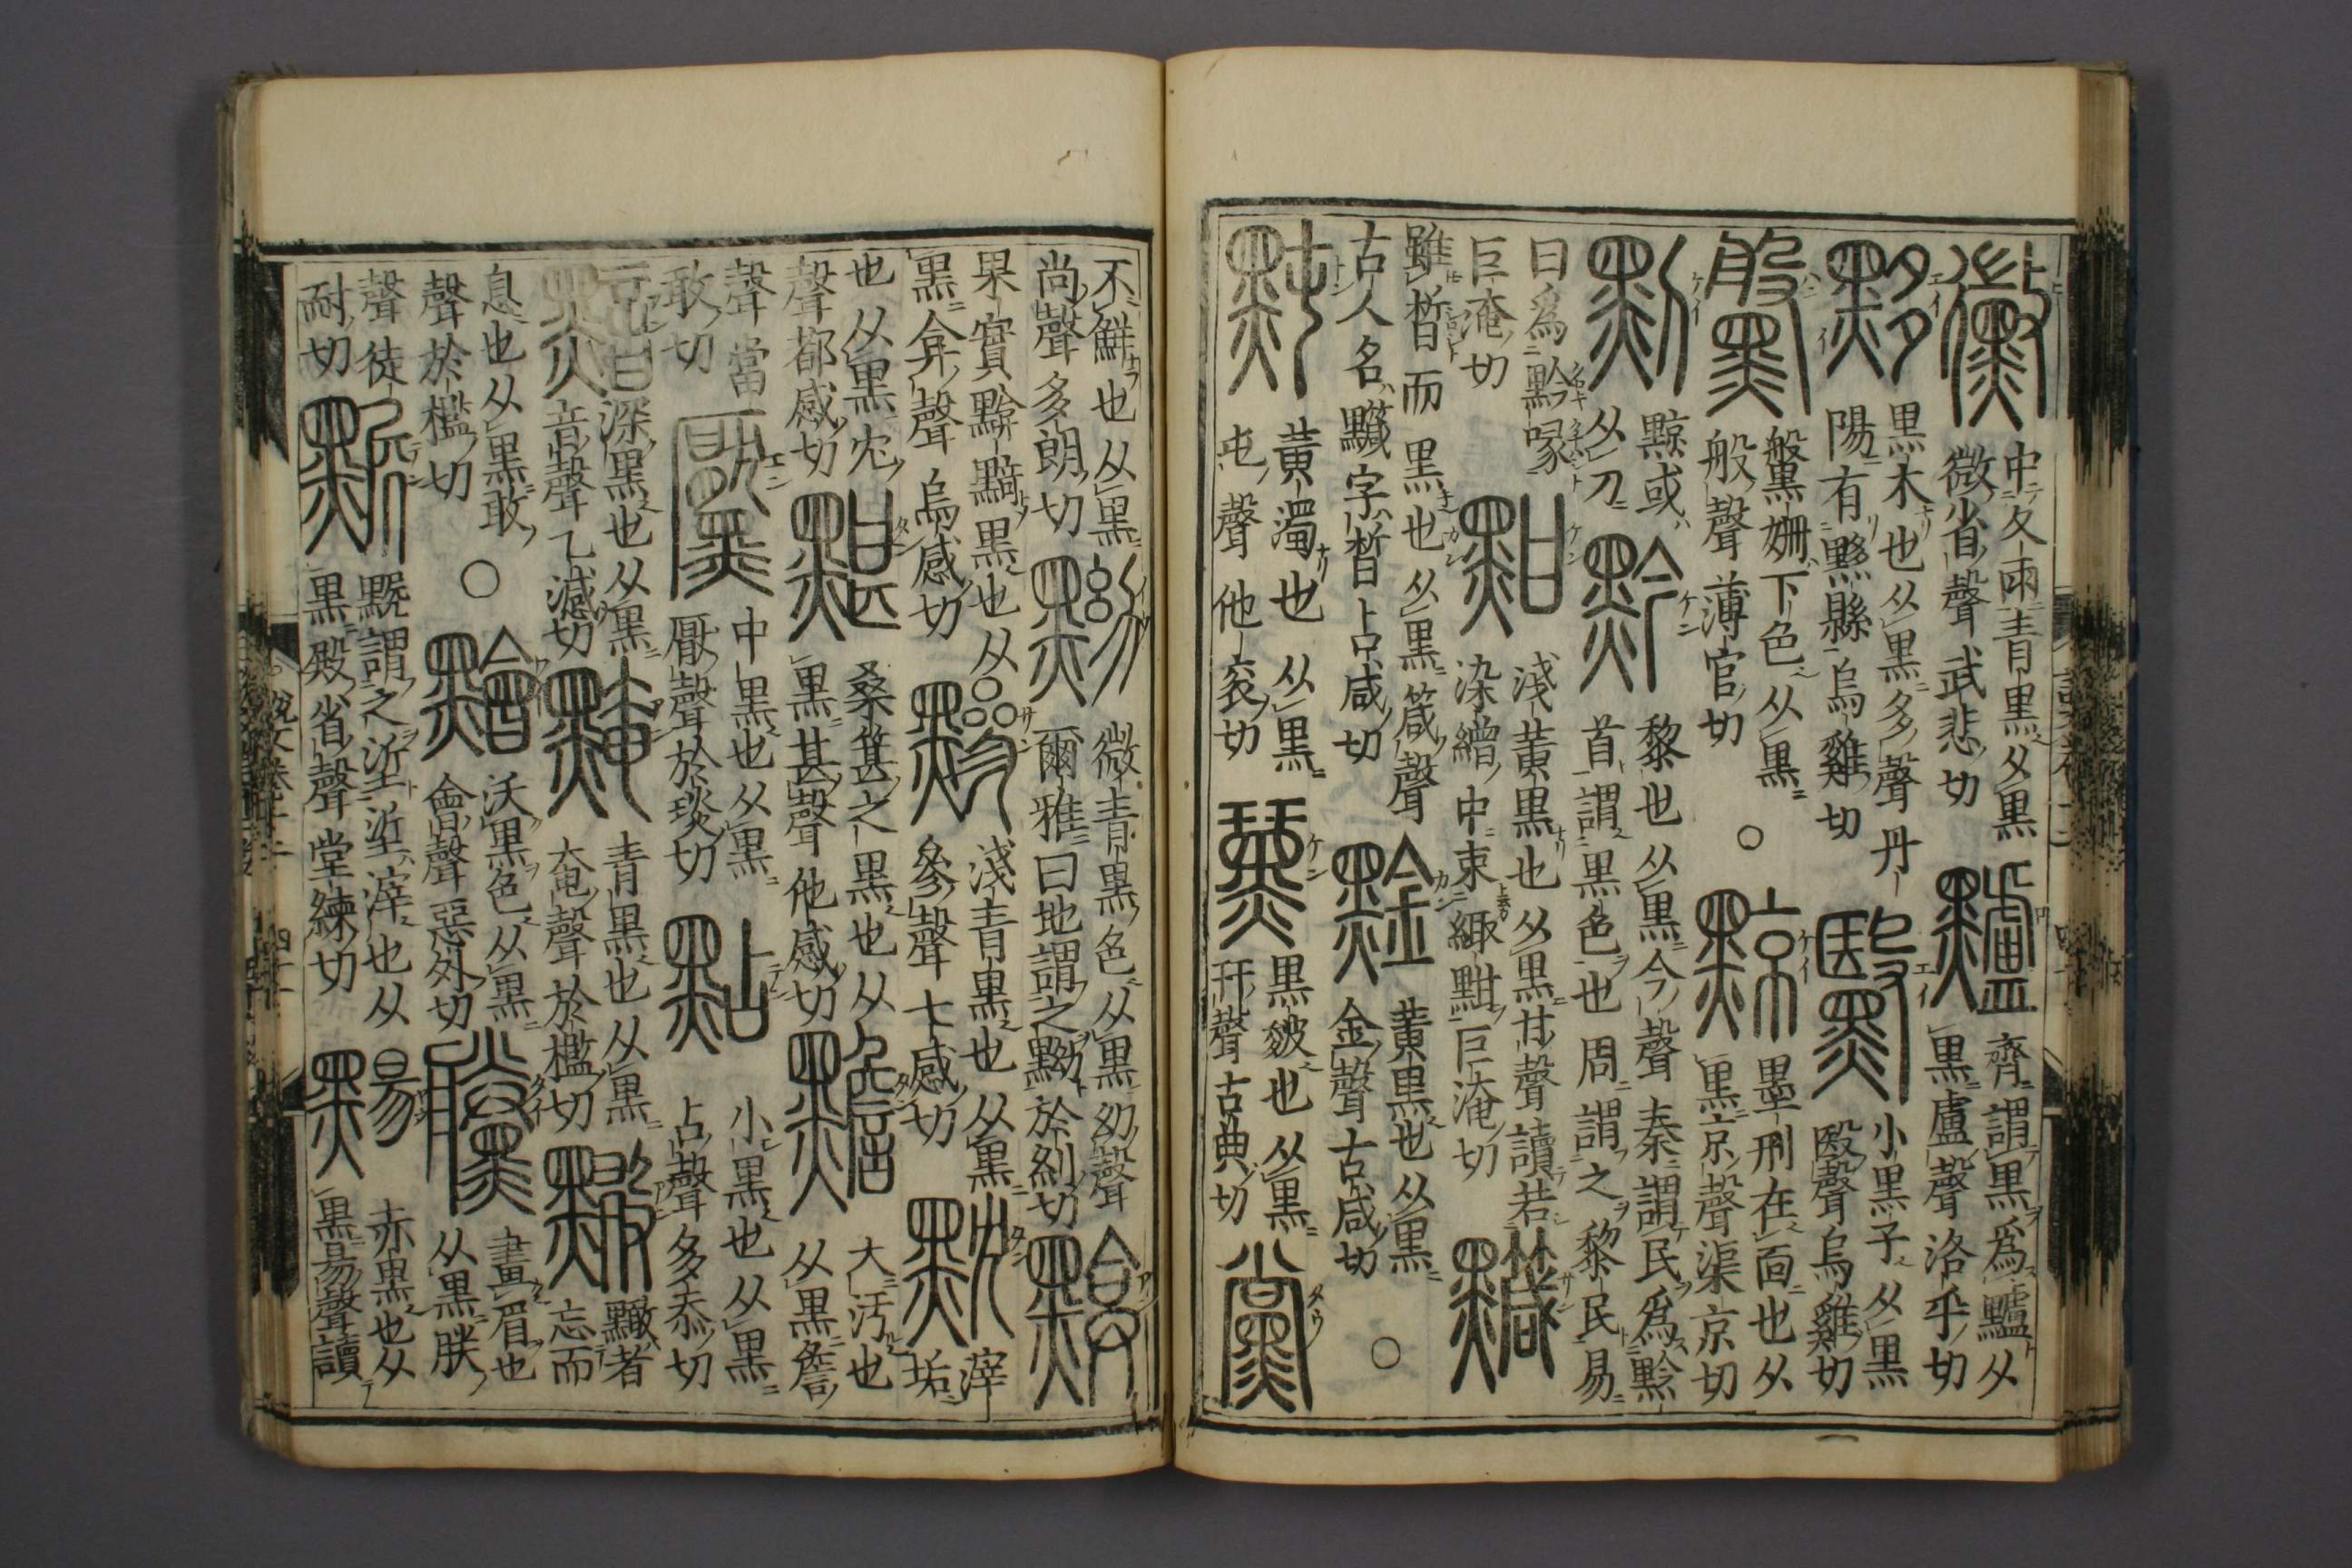 黴 中久雨青黑从黑
微省聲武悲切
黸 齊謂黑爲黸从
黑盧聲洛乎切
黟 黑木也从黑多聲丹
陽有黟縣烏雞切
黳 小黑子从黑
殹聲烏雞切
鞶 鞶姍下色从黑
般聲薄官切
○
黥 墨刑在面也从
黑京聲渠京切
剠 黥或
从刀
黔 黎也从黑今聲秦謂民爲黔
首謂黑色也周謂之黎民易
曰爲黔喙
巨淹切
黚 淺黃黑也从黑甘聲讀若
染繒中束緅黚巨淹切
黬 雖晳而黑也从黑箴聲
古人名黬字晳占咸切
黅 黃黑也从黑
金聲古咸切
○
黗 黃濁也从黑
屯聲他衮切
黑皴也从黑
幵聲古典切
黨
不鮮也从黑
尚聲多朗切
黝 微青黑色从黑幼聲
爾雅曰地謂之黝於糾切
果實黭黯黑也从
黑弇聲烏感切
黲 淺青黑也从黑
參聲七感切
黕 滓垢
也从黑冘
聲都感切
黮 桑葚之黑也从
黑甚聲他感切
大污也
从黑詹
聲當
敢切
黶 中黑也从黑
厭聲於琰切
點 小黑也从黑
占聲多忝切
黯 深黑也从黑
音聲乙減切
青黑也从黑
奄聲於檻切
黭者
忘而
息也从黑敢
聲於檻切
○
黵 沃黑色从黑
會聲惡外切
黱 畫眉也
从黑朕
聲徒
耐切
黗謂之垽垽滓也从
黑殿省聲堂練切
赤黑也从
黑昜聲讀
説文卷十二
四十